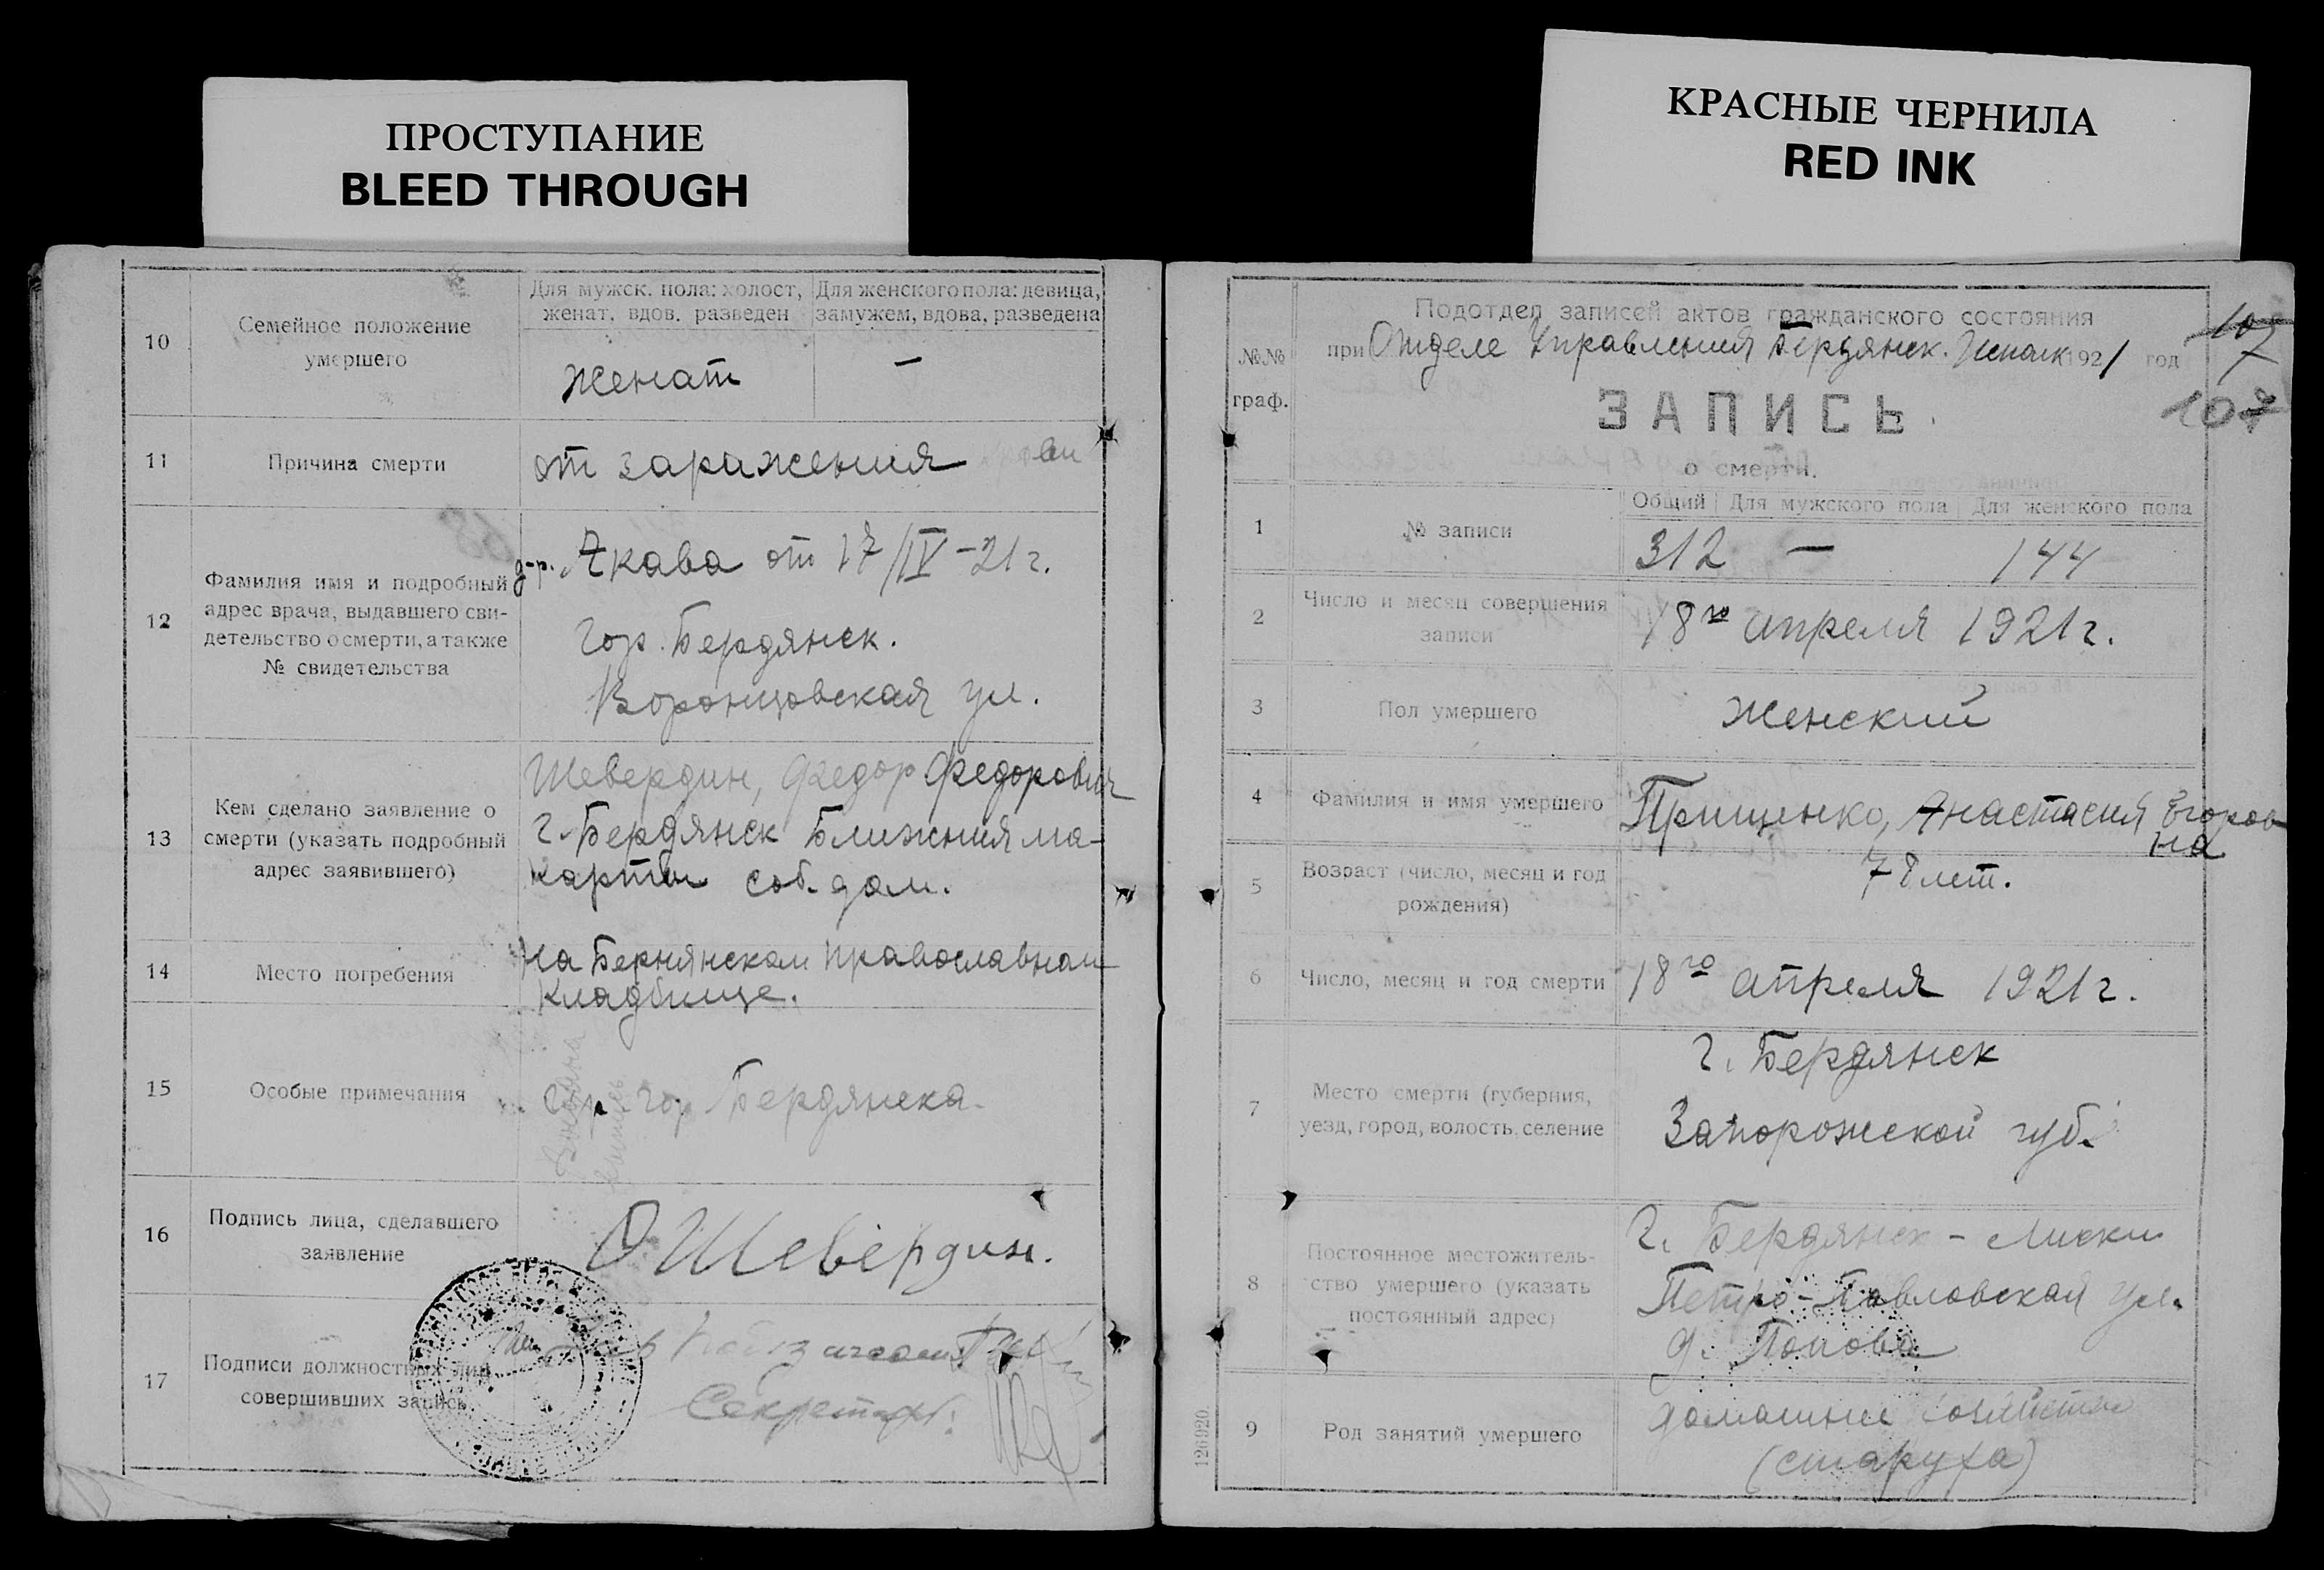 ПРОСТУПАНИЕ
BLEED THROUGH
КРАСНЫЕ ЧЕРНИЛА
RED INK
10
Семейное положение
умершего
Для мужск. пола: холост,
женат, вдов. разведен
Для женского пола: девица,
замужем, вдова, разведена
женат
—
11
Причина смерти
от заражения
12
Фамилия имя и подробный
адрес врача, выдавшего сви-
детельство о смерти, а также
№ свидетельства
д-р. Акава от 17/IV-21 г.
гор. Бердянск.
Воронцовская ул.
13
Кем сделано заявление о
смерти (указать подробный
адрес заявившего)
Шевердин, Федор Федорович
г. Бердянск Ближния ма-
карты соб. дом.
14
Место погребения
на Бернянском православном
кладбище.
15
Особые примечания
гр. гор Бердянска.
16
Подпись лица, сделавшего
заявление
Шевердин.
17
Подписи должностных лиц
совершивших запись
Секретарь:
№№
граф.
Подотдел записей актов гражданского состояния
при Отделе Управления Бердянск. 1921 год
107
107
ЗАПИСЬ
о смерти.
1
№ записи
Общий Для мужского пола Для женского пола
312 — 144
2
Число и месяц совершения
записи
18го апреля 1921 г.
3
Пол умершего
Женский
4
Фамилия и имя умершего
Прищенко, Анастасия Егоров
на
5
Возраст (число, месяц и год
рождения)
78 лет.
6
Число, месяц и год смерти
18го апреля 1921 г.
7
Место смерти (губерния,
уезд, город, волость, селение
г. Бердянск
Запорожской губ.
8
Постоянное местожитель-
ство умершего (указать
постоянный адрес)
г. Бердянск - Лиски
Петро-Павловская ул.
д. Попова
9
Род занятий умершего
домашнее
(старуха)
126920.